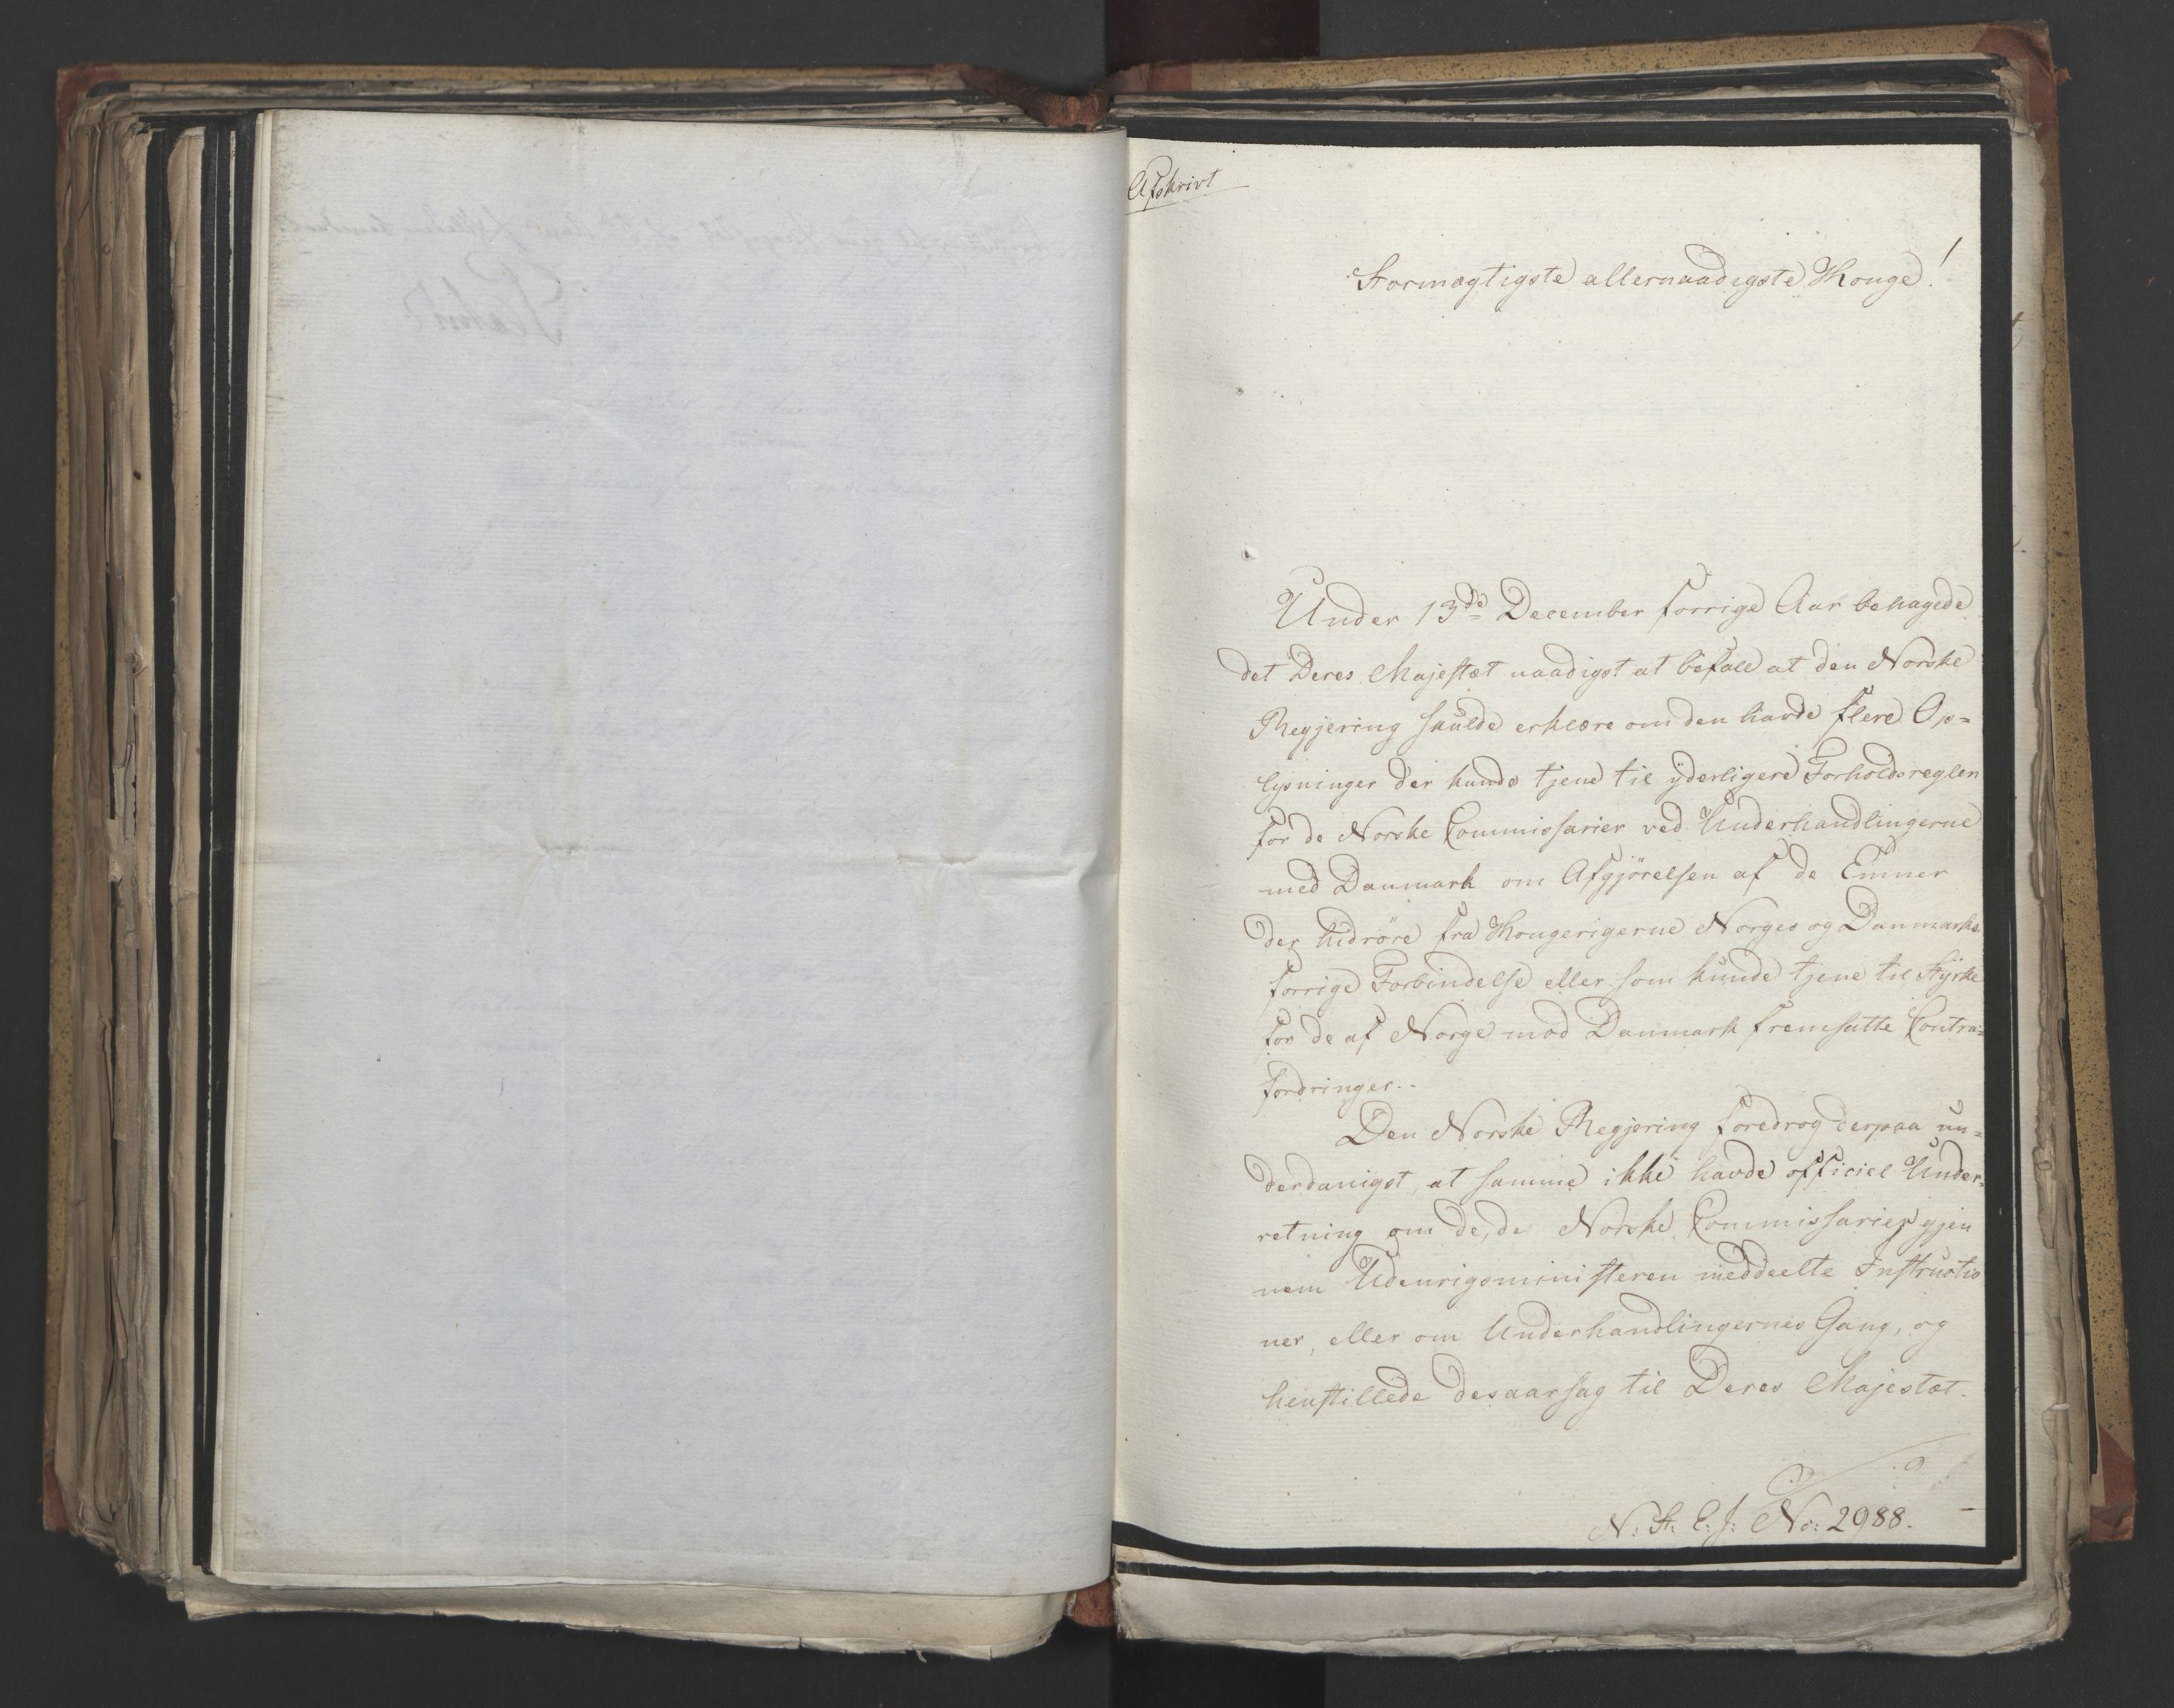 Afskrivt
Stormægtigste allernaadigste Konge!
Under 13de December forrige Aar behagede
det Deres Majestæt naadigst at befale at den Norske
Regjering skulde erklære om den havde flere Op=
lysninger der kunde tjene til yderligere Forholdsregler
for de Norske Commissarier ved Underhandlingerne
med Danmark om Afgjörelsen af de Emner
der hidröre fra Kongerigerne Norges og Danmarks
forrige Forbindelse eller som kunde tjene til Styrke
for de af Norge mod Danmark fremsatte Contra=
fordringer.
Den Norske Regjering foredrog derpaa un=
derdanigst, at samme ikke havde officiel Under=
retning om de, de Norske Commissarier gjen
nem Udenrigsministeren meddeelte Instructio
ner, eller om Underhandlingernes Gang, og
henstillede desaarsag til Deres Majestæt.
N: St: C: J: No: 2988.